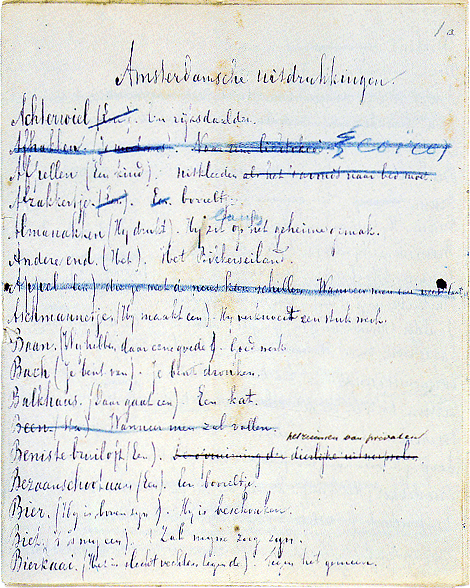 1a
Amsterdamsche uitdrukkingen.
Achterwiel (Een). Een rijksdaalder.
Afhallen
Afpellen (Een kind). uitkleeden als het 's avonds naar bed moet.
Afzakkertje (Een). Een borrelt
Almanakken (Hij drukt). Hij zit op het geheime gemak.
Andere end. (Het). Het Bickerseiland.
Appel (Een) die je met á neus kan schillen. Wanneer men
Aschmannetje (Hij maakt een). Hij verknoeit een stuk werk.
Baan. (Wij hebben daar eene goede). Goed werk
Bach (Je bent van) Je bent dronken.
Balkhaas. (Daar gaat een) Een kat.
Been. Wanneer men zal vallen.
Benistebruiloft (Een). het ruimen van privaten
Bezaanschootaan (Een). Een borreltje.
Bier. (Hij is boven zijn). Hij is beschonken.
Biet. ('t is mijn een). 't Zal mijne zorg zijn.
Bierkaai. (Het is slecht vechten tegen de). Tegen het gemeen.